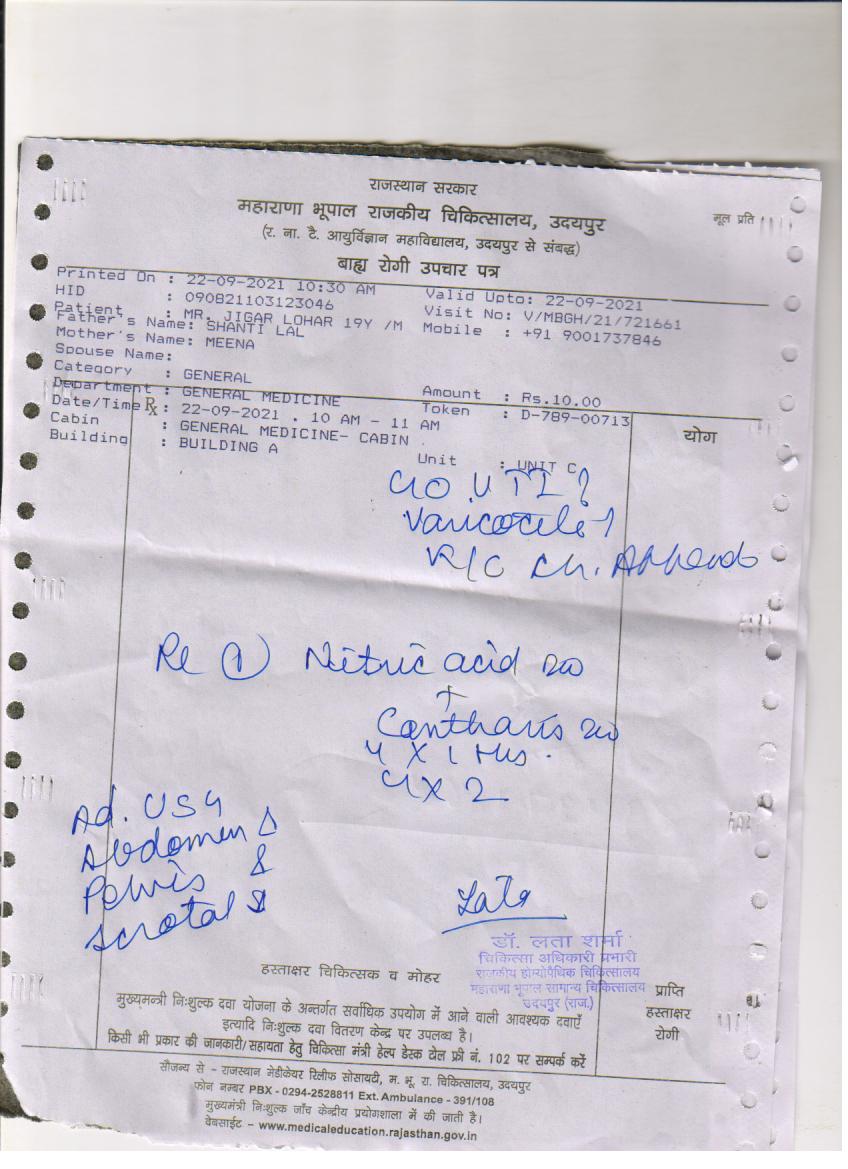 राजस्थान सरकार
महाराणा भूपाल राजकीय चिकित्सालय, उदयपुर
मूल प्रति
(र. ना. टै. आयुर्विज्ञान महाविद्यालय, उदयपुर से संबद्ध)
बाह्य रोगी उपचार पत्र
Printed On : 22-09-2021 10:30 AM Valid Upto: 22-09-2021
HID : 090821103123046 Visit No: V/MBGH/21/721661
Patient : MR. JIGAR LOHAR 19Y /M Mobile : +91 9001737846
Father's Name: SHANTI LAL
Mother's Name: MEENA
Spouse Name:
Category : GENERAL
Department : GENERAL MEDICINE Amount : Rs.10.00
Date/Time : 22-09-2021 . 10 AM - 11 AM Token : D-789-00713
Rx
Cabin : GENERAL MEDICINE- CABIN
Building : BUILDING A Unit : UNIT C
योग
C/O UTI ?
Varicocele ?
K/C Ch.
Nitric acid 200
+
Cantharis 200
4 X 1 Hrs.
Ad. USG
Abdomen &
Pelvis &
Scrotal
Lata
डॉ. लता शर्मा
चिकित्सा अधिकारी प्रभारी
राजकीय होम्योपैथिक चिकित्सालय
महाराणा भूपाल सामान्य चिकित्सालय
उदयपुर (राज.)
हस्ताक्षर चिकित्सक व मोहर
प्राप्ति
हस्ताक्षर
रोगी
मुख्यमन्त्री निःशुल्क दवा योजना के अन्तर्गत सर्वाधिक उपयोग में आने वाली आवश्यक दवाएँ
इत्यादि निःशुल्क दवा वितरण केन्द्र पर उपलब्ध है।
किसी भी प्रकार की जानकारी/सहायता हेतु चिकित्सा मंत्री हेल्प डेस्क टोल फ्री नं. 102 पर सम्पर्क करें
सौजन्य से - राजस्थान मेडीकेयर रिलीफ सोसायटी, म. भू. रा. चिकित्सालय, उदयपुर
फोन नम्बर PBX - 0294-2528811 Ext. Ambulance - 391/108
मुख्यमन्त्री निःशुल्क जाँच केन्द्रीय प्रयोगशाला में की जाती है।
वेबसाईट – www.medicaleducation.rajasthan.gov.in